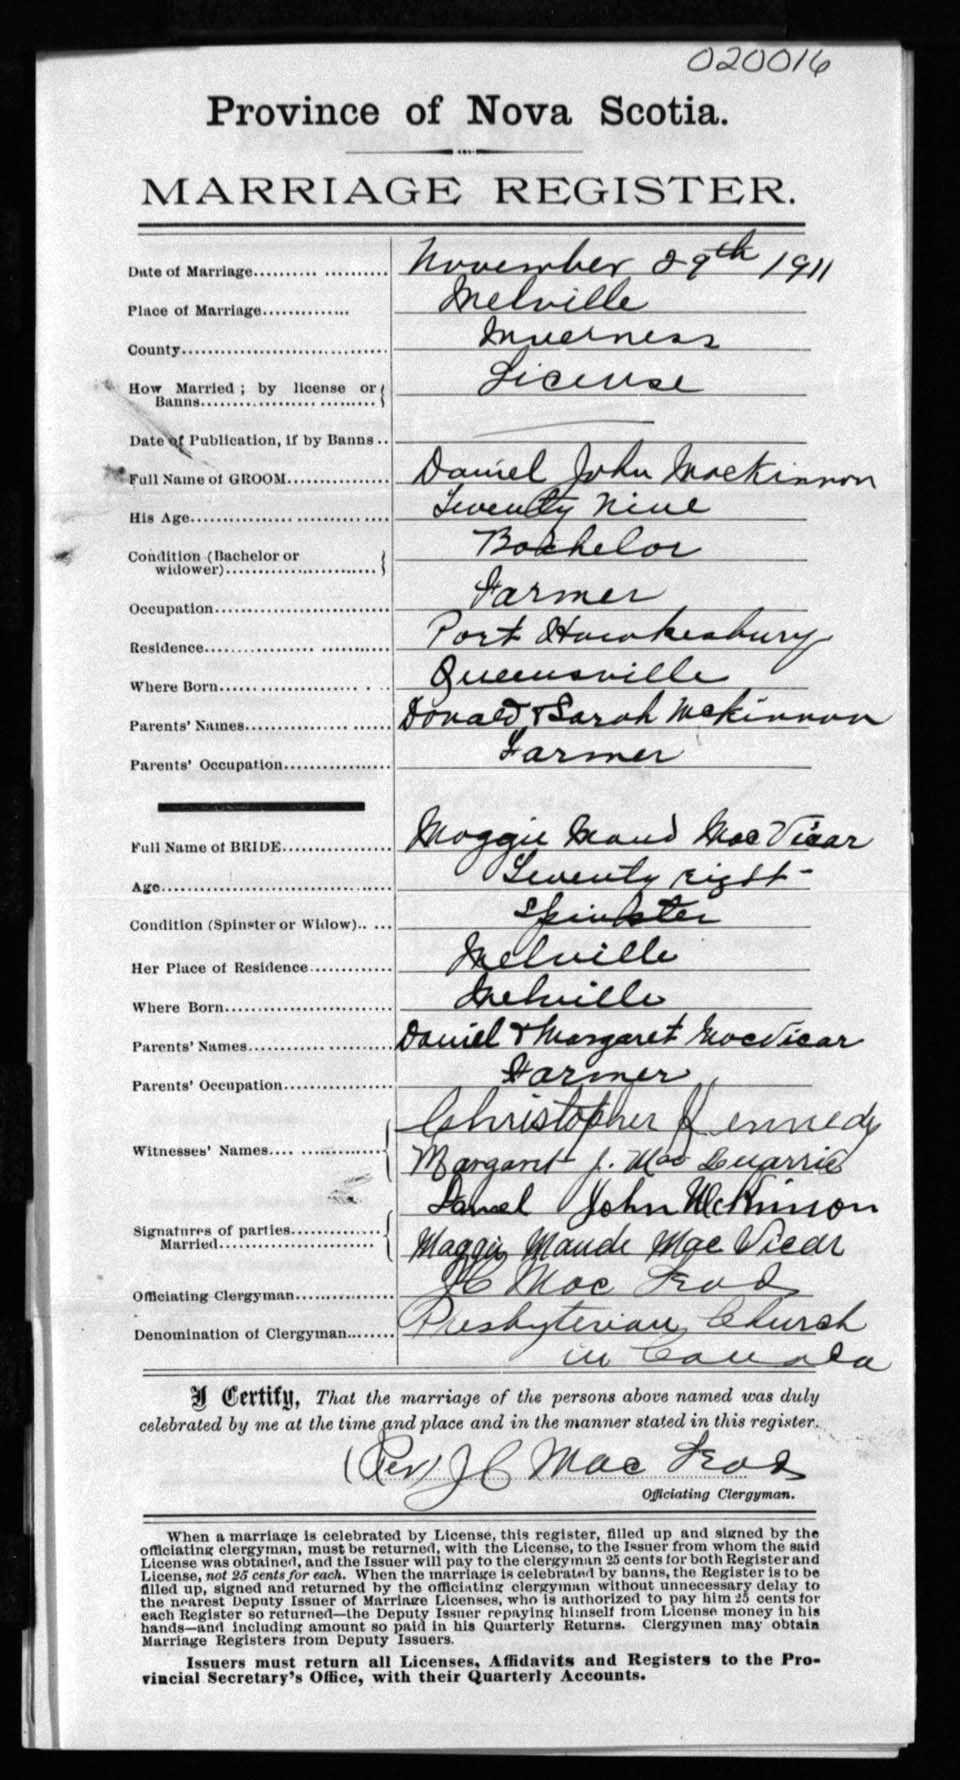 020016
Province of Nova Scotia.
MARRIAGE REGISTER.
Date of Marriage.......... ........... November 29th 1911
Place of Marriage.............. Melville
County.................................. Inverness
How Married; by license or License
Banns..............................
Date of Publication, if by Banns..
Full Name of GROOM................. Daniel John MacKinnon
His Age................................. Twenty Nine
Condition (Bachelor or Bachelor
widower)..........................
Occupation............................. Farmer
Residence............................... Port Hawkesbury
Where Born............................ Queensville
Parents' Names........................ Donald & Sarah McKinnon
Parents' Occupation................. Farmer
Full Name of BRIDE.................. Maggie Maud MacVicar
Age...................................... Twenty Eight
Condition (Spinster or Widow).. ... Spinster
Her Place of Residence............. Melville
Where Born............................ Melville
Parents' Names........................ Daniel & Margaret MacVicar
Parents' Occupation................. Farmer
Witnesses' Names.................... Christopher Kennedy
Margaret J. MacQuarrie
Signatures of parties............... Daniel John McKinnon
Married............................ Maggie Maude MacVicar
Officiating Clergyman............... J C MacLeod
Denomination of Clergyman........ Presbyterian Church
in Canada
I Certify, That the marriage of the persons above named was duly
celebrated by me at the time and place and in the manner stated in this register.
(Rev) J C MacLeod
Officiating Clergyman.
When a marriage is celebrated by License, this register, filled up and signed by the
officiating clergyman, must be returned, with the License, to the Issuer from whom the said
License was obtained, and the Issuer will pay to the clergyman 25 cents for both Register and
License, not 25 cents for each. When the marriage is celebrated by banns, the Register is to be
filled up, signed and returned by the officiating clergyman without unnecessary delay to
the nearest Deputy Issuer of Marriage Licenses, who is authorized to pay him 25 cents for
each Register so returned—the Deputy Issuer repaying himself from License money in his
hands—and including amount so paid in his Quarterly Returns. Clergymen may obtain
Marriage Registers from Deputy Issuers.
Issuers must return all Licenses, Affidavits and Registers to the Pro-
vincial Secretary's Office, with their Quarterly Accounts.